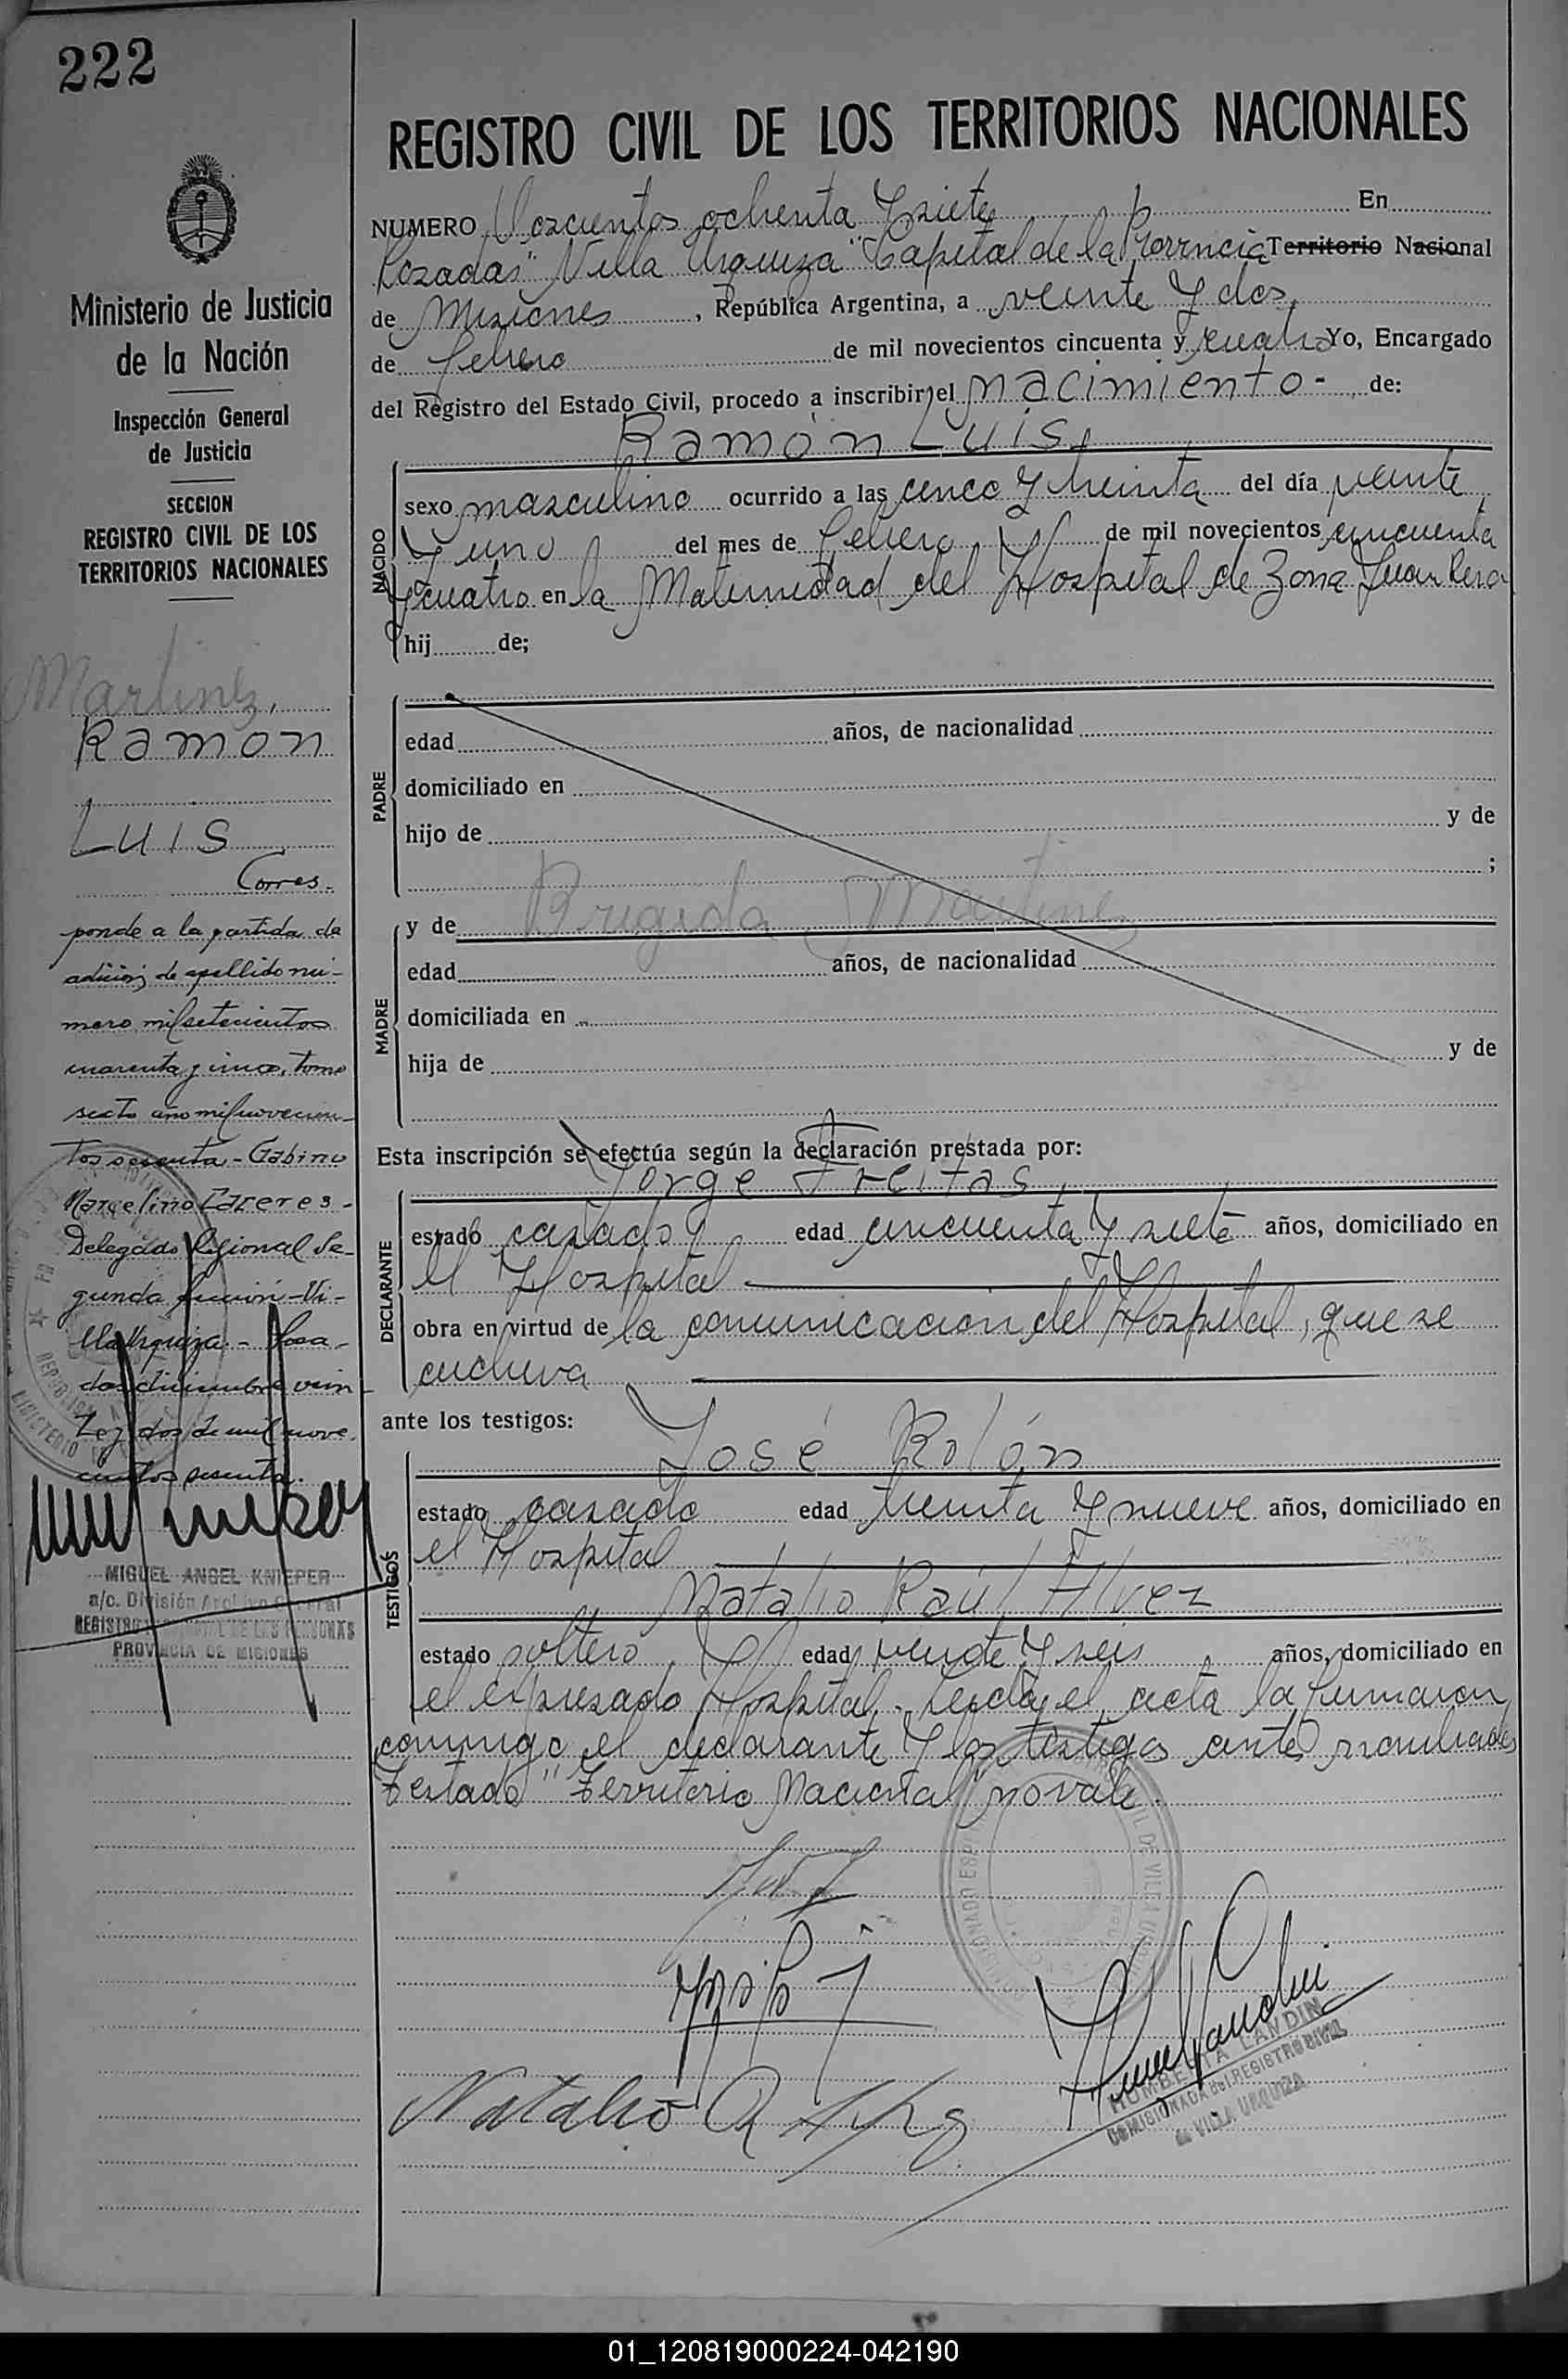 222
REGISTRO CIVIL DE LOS TERRITORIOS NACIONALES
NUMERO Doscientos ochenta y siete En
Posadas "Villa Urquiza" Capital de la Provincia Territorio Nacional
de Misiones, República Argentina, a veinte y dos
de febrero de mil novecientos cincuenta y cuatro Yo, Encargado
del Registro del Estado Civil, procedo a inscribir el nacimiento- de:
Ramón Luis,
NACIDO
sexo masculino ocurrido a las cinco y treinta del día veinte
y uno del mes de febrero de mil novecientos cincuenta
y cuatro en la Maternidad del Hospital de Zona Juan
hij de;
PADRE
edad años, de nacionalidad
domiciliado en
hijo de y de
;
MADRE
y de Brigida Martinez
edad años, de nacionalidad
domiciliada en
hija de y de
Esta inscripción se efectúa según la declaración prestada por:
Jorge Freitas,
DECLARANTE
estado casado edad cincuenta y siete años, domiciliado en
el Hospital
obra en virtud de la comunicación del Hospital, que se
archiva
ante los testigos:
TESTIGOS
José Rolón
estado casado edad treinta y nueve años, domiciliado en
el Hospital
Natalio Raúl Alvez
estado soltero, edad veinte y seis años, domiciliado en
el expresado Hospital.- Leida el acta la firmaron
conmigo el declarante y los testigos antes nombrados
Testado "Territorio Nacional" no vale.
Natalio R
HUMBERTA LANDIN
COMISIONADA del REGISTRO CIVIL
de VILLA URQUIZA
Ministerio de Justicia
de la Nación
Inspección General
de Justicia
SECCION
REGISTRO CIVIL DE LOS
TERRITORIOS NACIONALES
Martinez,
Ramon
Luis
Corres-
ponde a la partida de
adición de apellido nú-
mero mil setecientos
cuarenta y cinco, tomo
sexto año mil novecien-
tos sesenta - Gabino
Marcelino Caceres -
Delegado Regional Se-
gunda Sección - Vi-
lla Urquiza - Posa-
das diciembre vein
te y dos de mil nove
cientos sesenta.
MIGUEL ANGEL KNIEPER
a/c. División Archivo General
REGISTRO PROVINCIAL DE LAS PERSONAS
PROVINCIA DE MISIONES
01_120819000224-042190